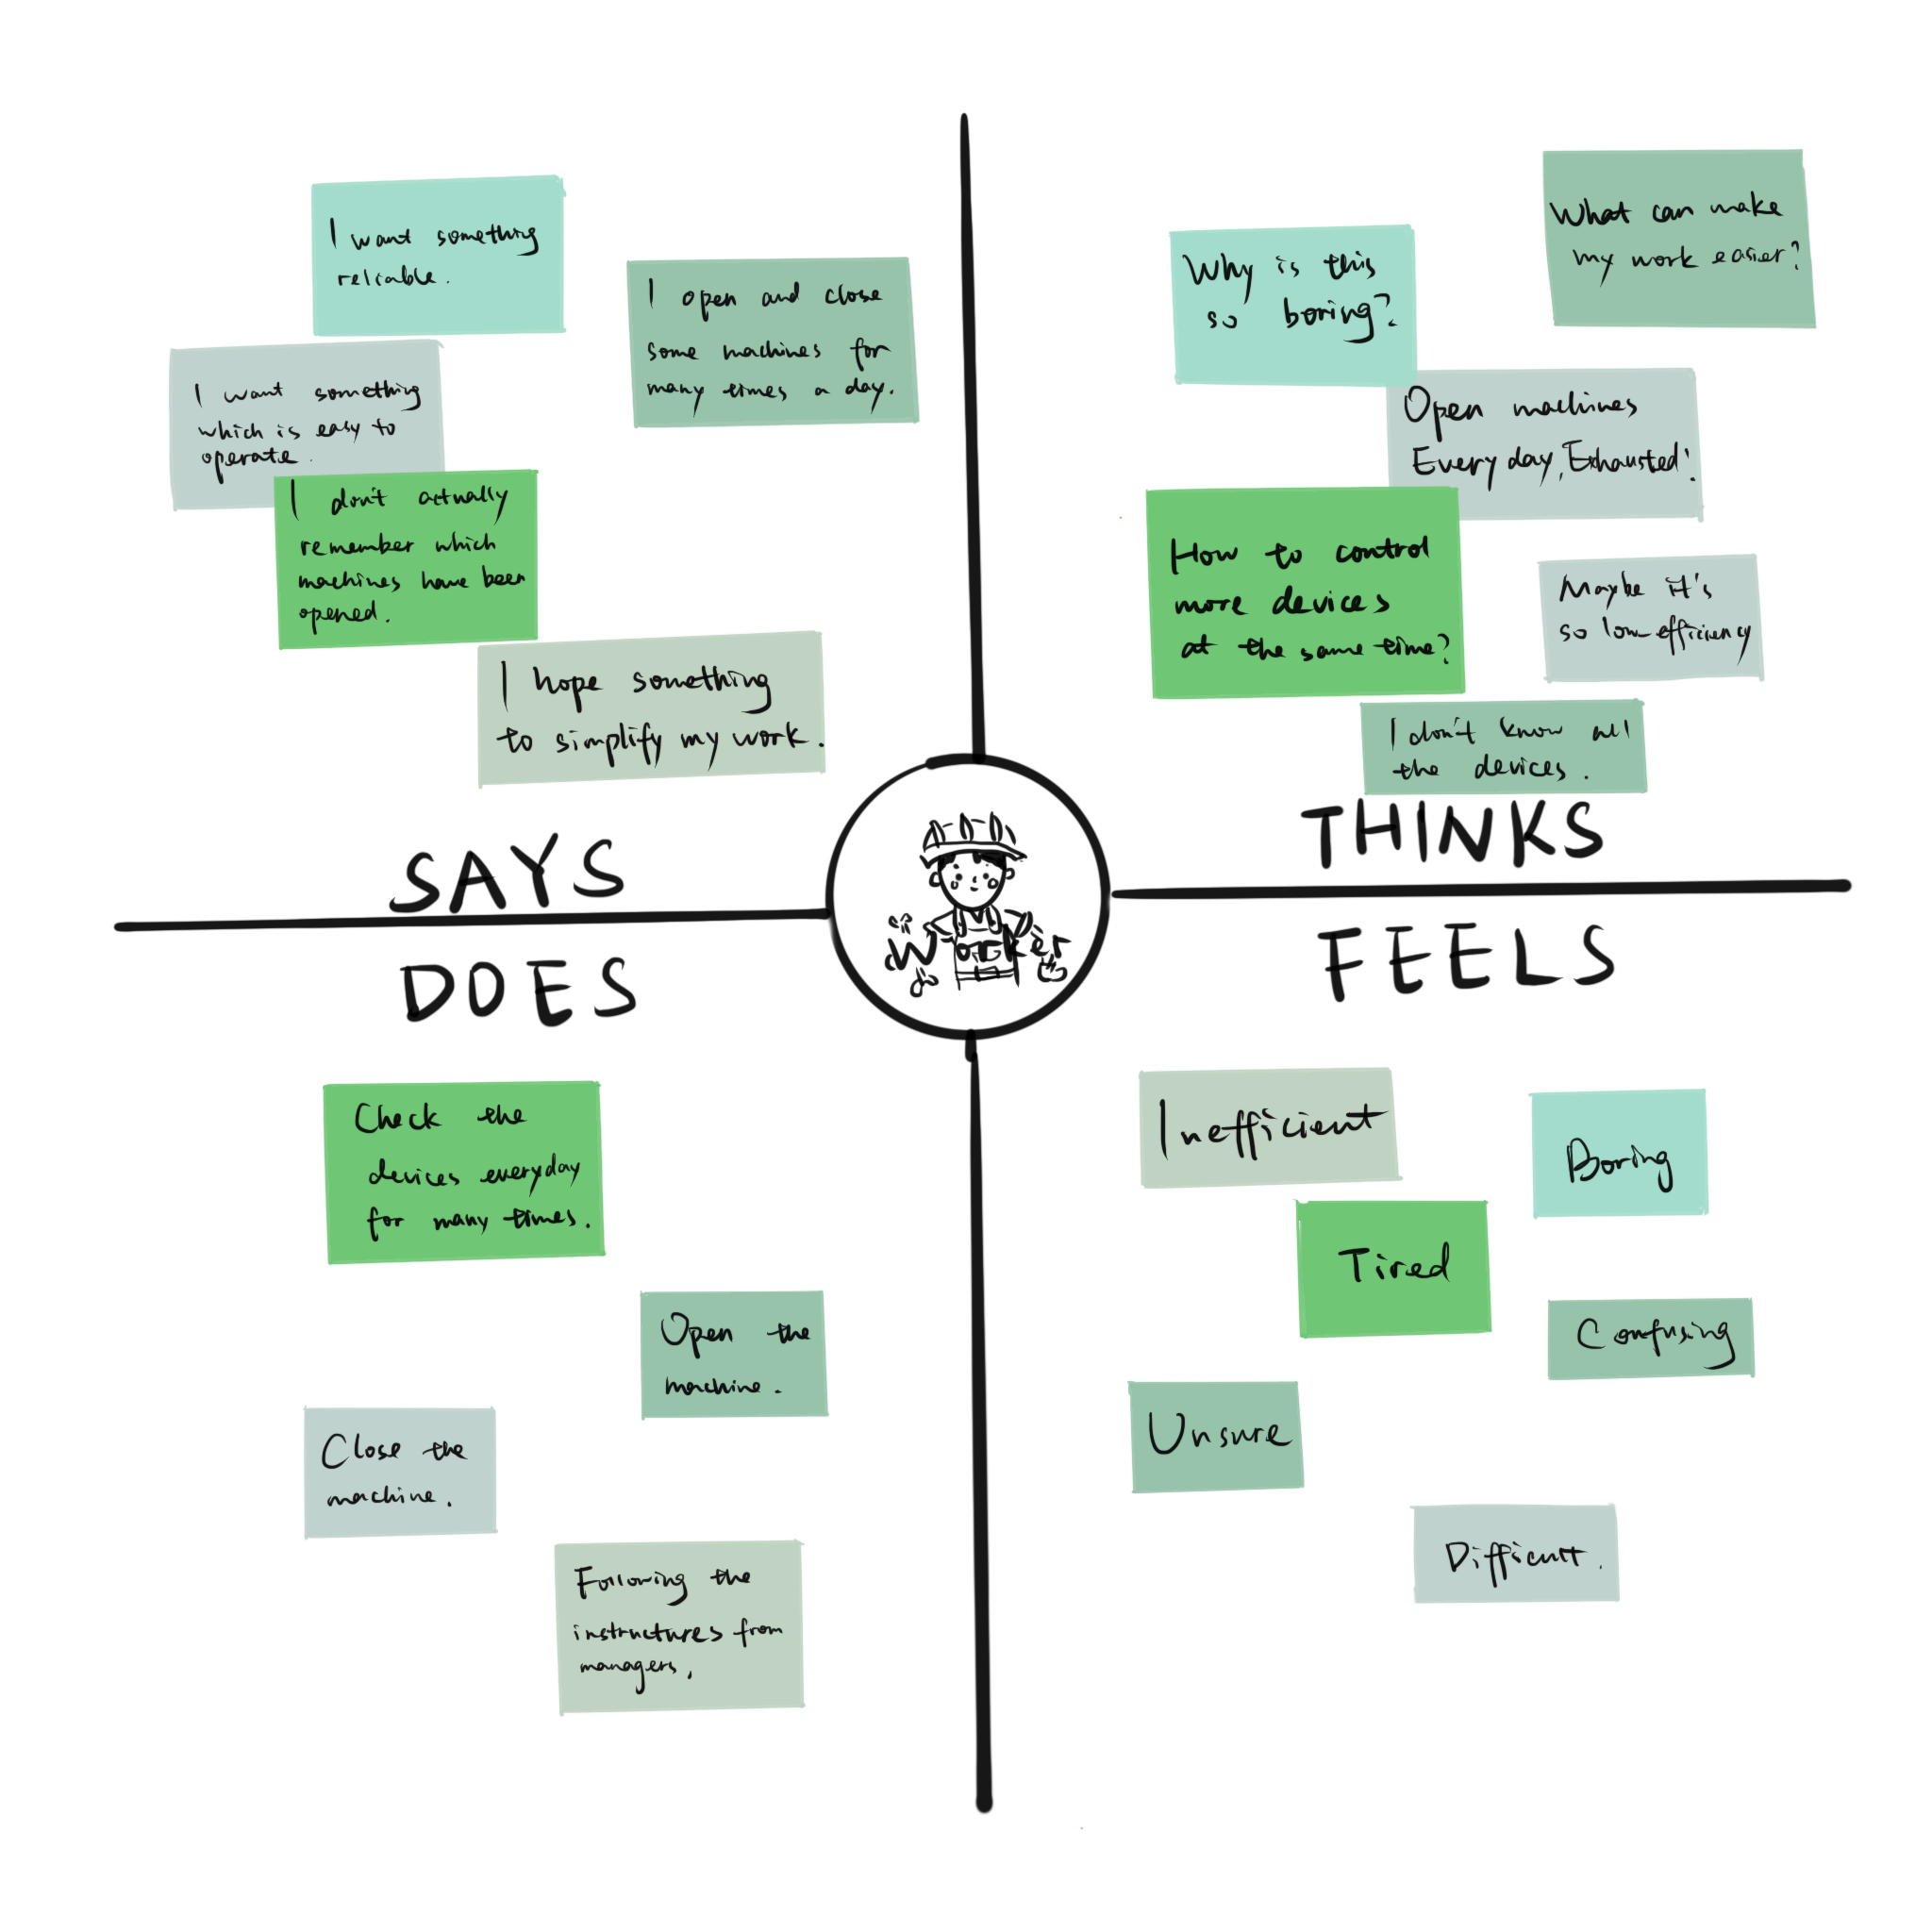 I want something
reliable.
I open and close
some machines for
many times a day.
I want something
which is easy to
operate.
I don't actually
remember which
machines have been
opened.
I hope something
to simplify my work.
SAYS
Why is this
so boring?
What can make
my work easier?
Open machines
Everyday, Exhausted!
How to control
more devices
at the same time?
Maybe it's
so low-efficiency
I don't know all
the devices.
THINKS
Worker
DOES
Check the
devices everyday
for many times.
Open the
machine.
Close the
machine.
Following the
instructures from
managers.
FEELS
Inefficient
Boring
Tired
Confusing
Unsure
Difficult.